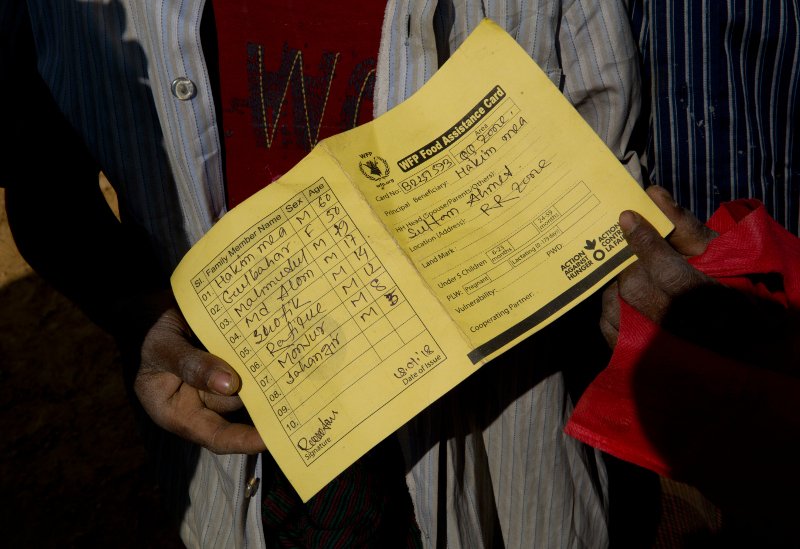 WFP
wfp.org
WFP Food Assistance Card
Card No: B0257573 Area
Zone.
Principal Beneficiary: Hakim mea
HH Head (Spouse/Parents/Others)
Sultan Ahmed
Location (Address): RR Zone
Land Mark
Under 5 Children 6-23 months 24-59 months
PLW: Pregnant Lactating (0-179 day) PWD:
Vulnerability:
Cooperating Partner:
ACTION AGAINST HUNGER
ACTION CONTRE LA FAIM
Sl. Family Member Name Sex Age
01. Hakim mea M 60
02. Gulbahar F 50
03. Mahmudul M 19
04. Md Alom M 17
05. Shofik M 14
06. Rofique M 12
07. Monjur M 8
08. Jahangir M 3
09.
10.
18.01.18
Date of Issue
Signature